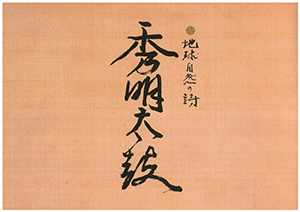 地球自然の詩
秀明太鼓